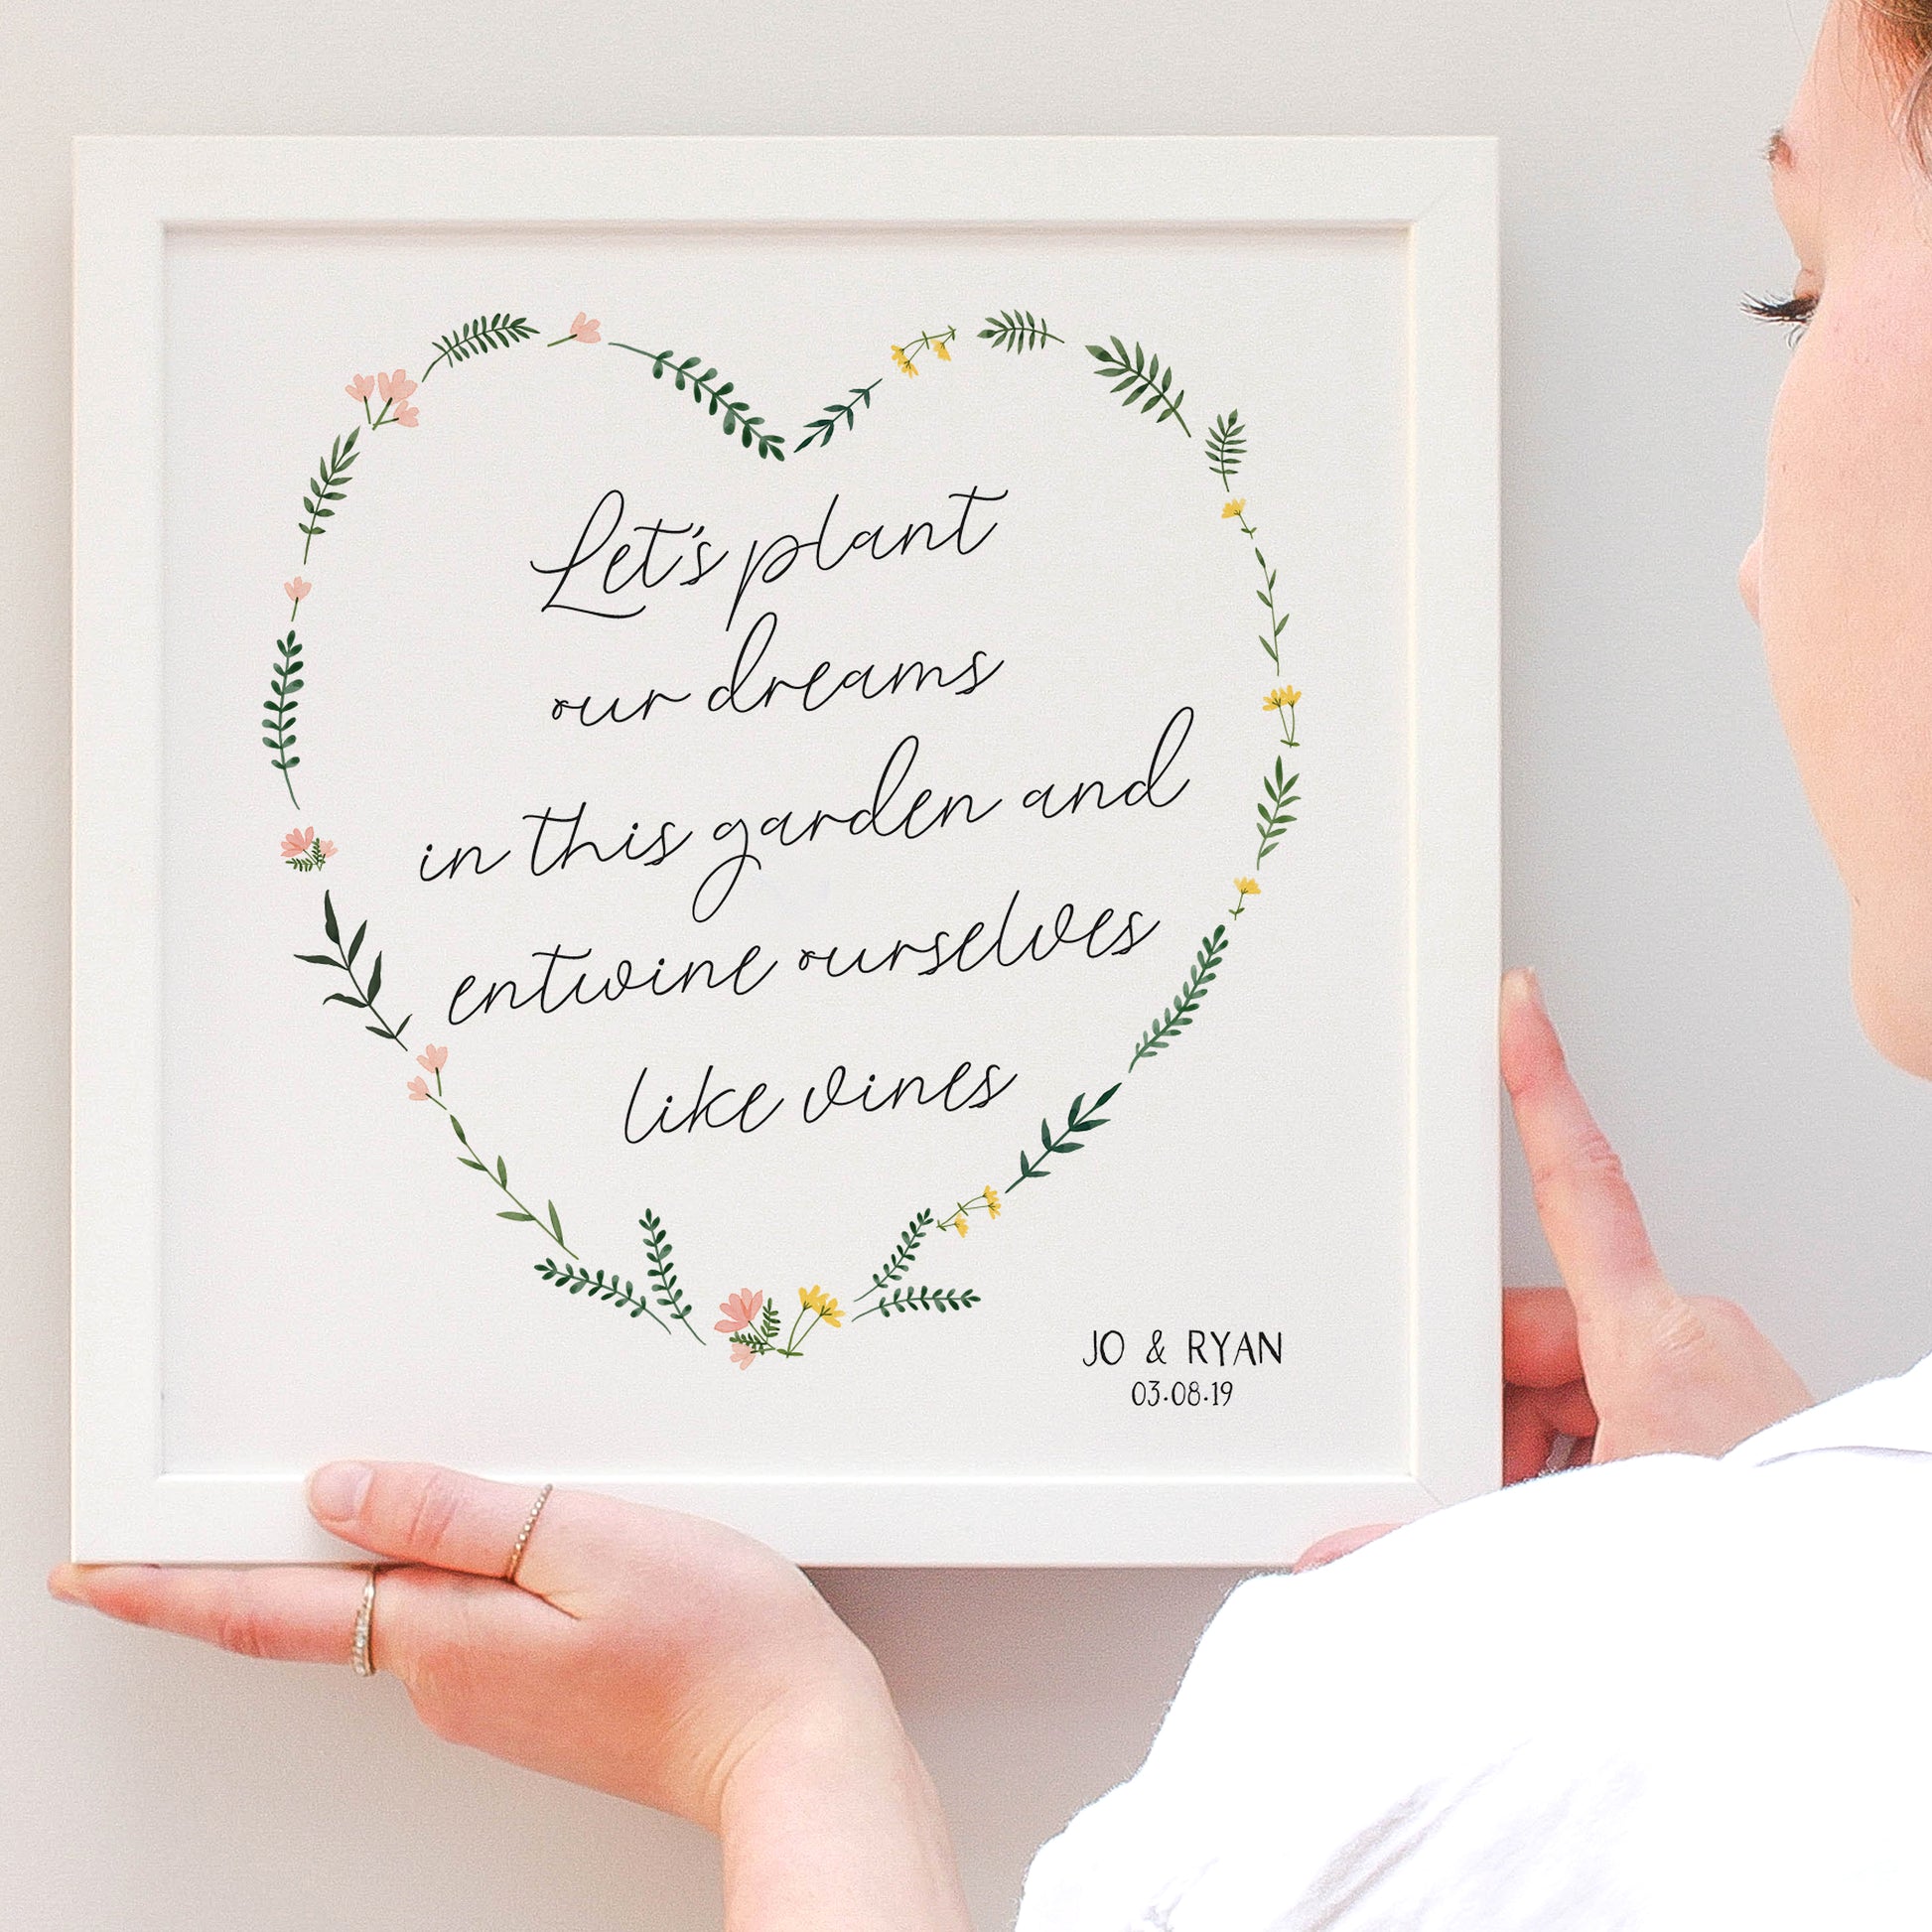 Let's plant
our dreams
in this garden and
entwine ourselves
like vines
JO & RYAN
03.08.19